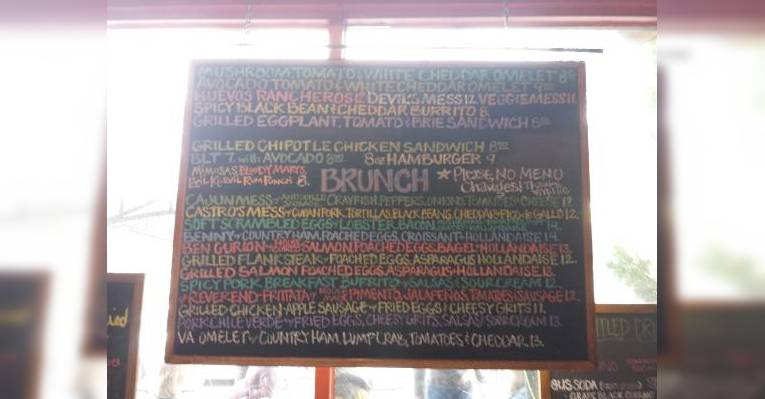 MUSHROOM TOMATO & WHITE CHEDDAR OMELET 8
AVOCADO TOMATO & WHITE CHEDDAR OMELET 9
HUEVOS RANCHEROS 8 DEVIL'S MESS 12 VEGGIE MESS 11
SPICY BLACK BEAN & CHEDDAR BURRITO 8
GRILLED EGGPLANT, TOMATO & BRIE SANDWICH 8
GRILLED CHIPOTLE CHICKEN SANDWICH 8
BLT 7. with AVOCADO 8 8oz HAMBURGER 9
MIMOSAS, BLOODY MARYS, Rum Punch 8.
BRUNCH
* Please, NO MENU Changes!
CAJUN MESS CRAYFISH, PEPPERS, ONIONS, TOMATOES & CHEESE 12
CASTRO'S MESS CUBAN PORK, TORTILLAS, BLACK BEANS, CHEDDAR & PICO de GALLO 12.
SOFT SCRAMBLED EGGS LOBSTER, BACON 14.
BENNY COUNTRY HAM, POACHED EGGS, CROISSANT & HOLLANDAISE 11
BEN GURION SALMON POACHED EGGS, BAGEL & HOLLANDAISE 13.
GRILLED FLANK STEAK POACHED EGGS, ASPARAGUS HOLLANDAISE 12.
GRILLED SALMON POACHED EGGS, ASPARAGUS & HOLLANDAISE 13.
SPICY PORK BREAKFAST BURRITO SALSAS & SOUR CREAM 12.
REVEREND FRITTATA PIMENTO, JALAPENOS, TOMATOES & SAUSAGE 12.
GRILLED CHICKEN-APPLE SAUSAGE FRIED EGGS & CHEESY GRITS 11.
PORK CHILE VERDE FRIED EGGS, CHEESY GRITS, SALSAS & SOUR CREAM 13.
VA OMELET COUNTRY HAM, LUMP CRAB, TOMATOES & CHEDDAR 13.
SODA
BLACK